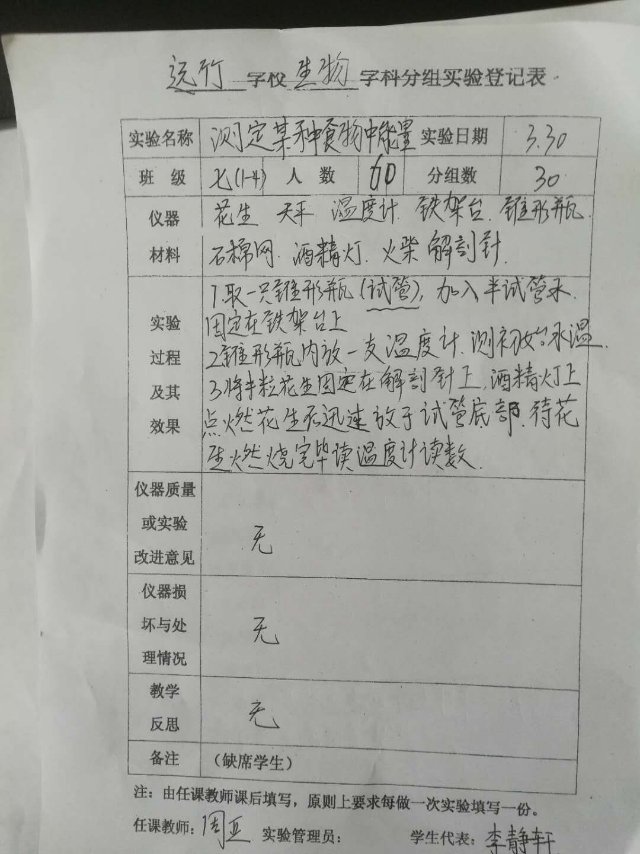 远行 学校 生物 学科分组实验登记表
实验名称 测定某种食物中能量 实验日期 3.30
班 级 七(1-4) 人 数 60 分组数 30
仪器 花生 天平 温度计. 铁架台. 锥形瓶.
材料 石棉网. 酒精灯. 火柴 解剖针.
1.取一只锥形瓶(试管), 加入半试管水.
实验 固定在铁架台上
过程 2.锥形瓶内放一支温度计. 测初始水温.
及其 3.将半粒花生固定在解剖针上, 酒精灯上
效果 点燃花生后迅速放于试管底部. 待花
生燃烧完毕读温度计读数.
仪器质量
或实验 无
改进意见
仪器损
坏与处 无
理情况
教学
反思 无
备注 (缺席学生)
注: 由任课教师课后填写，原则上要求每做一次实验填写一份。
任课教师: 周亚 实验管理员: 学生代表: 李静轩